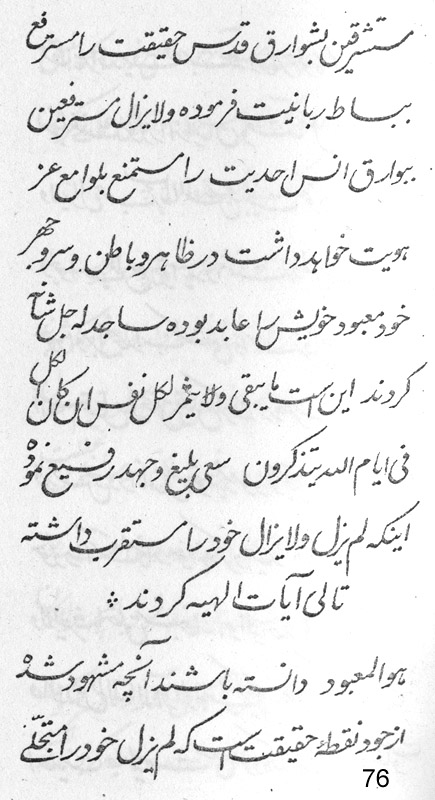 مستشرقین بشوارق قدس حقیقت را مسترفع
بساط ربانیت فرموده ولایزال مسترفعین
ببوارق انس احدیت را مستمنع بلوامع عز
هویت خواهد داشت در ظاهر و باطن و سر و جهر
خود معبود خویش را عابد بوده ساجد له جل شأنه
کردند این است مایبقی ولا یثمر لکل نفس ان کان لکل
فی ایام الله یتذکرون سعی بلیغ و جهد رفیع نموده
اینکه لم یزل ولایزال خود را مستقرب داشته
تالی آیات الهیه کردند ∴
هو المعبود دانسته باشند آنچه مشهود شده
از جود نقطهٔ حقیقت است که لم یزل خود را متجلّی
76